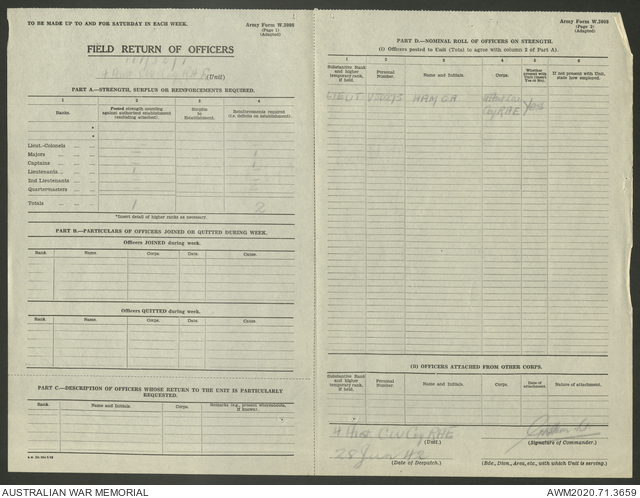 TO BE MADE UP TO AND FOR SATURDAY IN EACH WEEK.
Army Form W.3008
(Page 1)
(Adapted)
FIELD RETURN OF OFFICERS
(Unit)
PART A.—STRENGTH, SURPLUS OR REINFORCEMENTS REQUIRED.
1 2 3 4
Ranks. Posted strength counting against authorised establishment (excluding attached). Surplus to Establishment. Reinforcements required (i.e. deficits on establishment).
*
*
Lieut.-Colonels
Majors 1
Captains 1
Lieutenants 1
2nd Lieutenants
Quartermasters
Totals 1 2
*Insert detail of higher ranks as necessary.
PART B.—PARTICULARS OF OFFICERS JOINED OR QUITTED DURING WEEK.
Officers JOINED during week.
Rank. Name. Corps. Date. Cause.
Officers QUITTED during week.
Rank. Name. Corps. Date. Cause.
PART C.—DESCRIPTION OF OFFICERS WHOSE RETURN TO THE UNIT IS PARTICULARLY REQUESTED.
Rank. Name and Initials. Corps. Remarks (e.g., present whereabouts, if known).
Army Form W.3008
(Page 2)
(Adapted)
PART D.—NOMINAL ROLL OF OFFICERS ON STRENGTH.
(i) Officers posted to Unit (Total to agree with column 2 of Part A).
1 2 3 4 5 6
Substantive Rank and higher temporary rank, if held. Personal Number. Name and Initials. Corps. Whether present with Unit (insert Yes or No). If not present with Unit, state how employed.
LIEUT HAM GA Yes
Coy RAE
(ii) OFFICERS ATTACHED FROM OTHER CORPS.
Substantive Rank and higher temporary rank, if held. Personal Number. Name and Initials. Corps. Date of attachment. Nature of attachment.
Coy RAE
(Unit.)
(Signature of Commander.)
28 Jun 42
(Date of Despatch.)
(Bde., Divn., Area, etc., with which Unit is serving).
AUSTRALIAN WAR MEMORIAL
AWM2020.71.3659